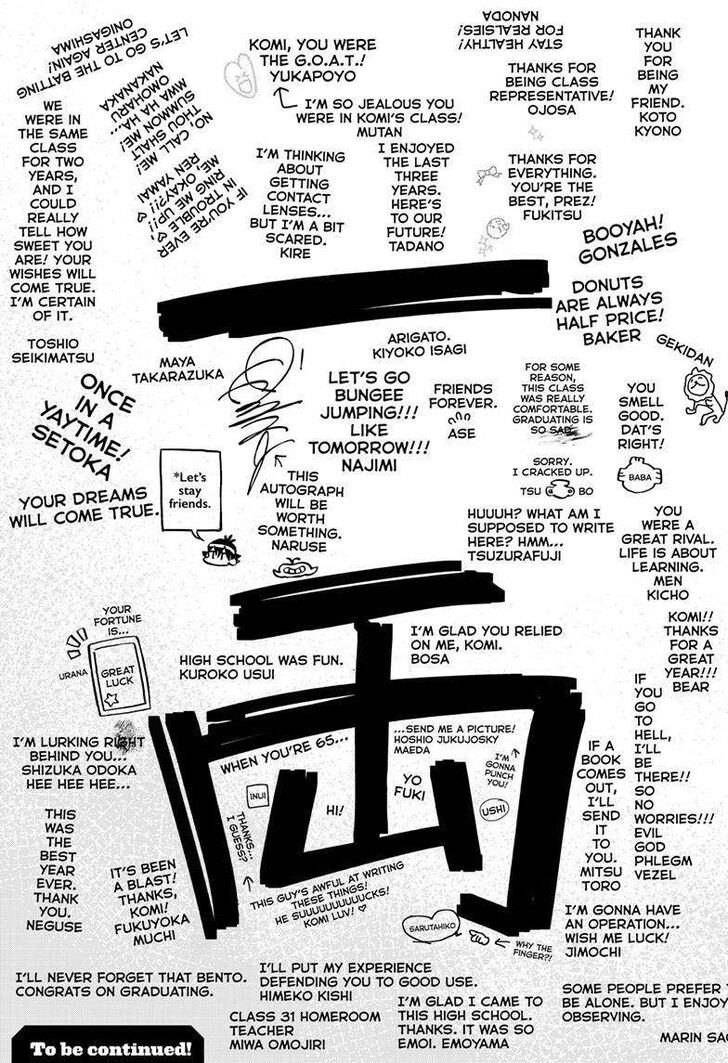 LET'S GO TO THE BATTING
CENTER AGAIN!
ONIGASHIMA
NO, CALL ME!
THOU SHALT
SUMMON ME!
MWA HA HA...
OMOHARU
NAKANAKA
IF YOU'RE EVER
IN TROUBLE,
RING ME UP!!
ME, OKAY?!
REN YAMAI
KOMI, YOU WERE
THE G.O.A.T.!
YUKAPOYO
I'M SO JEALOUS YOU
WERE IN KOMI'S CLASS!
MUTAN
STAY HEALTHY
FOR REALSIES!
NANODA
THANKS FOR
BEING CLASS
REPRESENTATIVE!
OJOSA
THANK
YOU
FOR
BEING
MY
FRIEND.
KOTO
KYONO
WE
WERE IN
THE SAME
CLASS
FOR TWO
YEARS,
AND I
COULD
REALLY
TELL HOW
SWEET YOU
ARE! YOUR
WISHES WILL
COME TRUE.
I'M CERTAIN
OF IT.
TOSHIO
SEIKIMATSU
I'M THINKING
ABOUT
GETTING
CONTACT
LENSES...
BUT I'M A BIT
SCARED.
KIRE
I ENJOYED
THE LAST
THREE
YEARS.
HERE'S
TO OUR
FUTURE!
TADANO
THANKS FOR
EVERYTHING.
YOU'RE THE
BEST, PREZ!
FUKITSU
BOOYAH!
GONZALES
DONUTS
ARE ALWAYS
HALF PRICE!
BAKER
GEKIDAN
一
MAYA
TAKARAZUKA
ARIGATO.
KIYOKO ISAGI
ONCE
IN A
YAYTIME!
SETOKA
LET'S GO
BUNGEE
JUMPING!!!
LIKE
TOMORROW!!!
NAJIMI
FRIENDS
FOREVER.
ASE
FOR SOME
REASON,
THIS CLASS
WAS REALLY
COMFORTABLE.
GRADUATING IS
SO SAD.
SORRY.
I CRACKED UP.
TSU BO
YOU
SMELL
GOOD.
DAT'S
RIGHT!
BABA
YOUR DREAMS
WILL COME TRUE.
*Let's
stay
friends.
THIS
AUTOGRAPH
WILL BE
WORTH
SOMETHING.
NARUSE
HUUUH? WHAT AM I
SUPPOSED TO WRITE
HERE? HMM...
TSUZURAFUJI
YOU
WERE A
GREAT RIVAL.
LIFE IS ABOUT
LEARNING.
MEN
KICHO
YOUR
FORTUNE
IS...
GREAT
LUCK
URANA
HIGH SCHOOL WAS FUN.
KUROKO USUI
I'M GLAD YOU RELIED
ON ME, KOMI.
BOSA
KOMI!!
THANKS
FOR A
GREAT
YEAR!!!
BEAR
I'M LURKING RIGHT
BEHIND YOU...
SHIZUKA ODOKA
HEE HEE HEE...
WHEN YOU'RE 65...
...SEND ME A PICTURE!
HOSHIO JUKUJOSKY
MAEDA
INUI
HI!
YO
FUKI
I'M
GONNA
PUNCH
YOU!
USHI
THANKS...
I GUESS?
THIS GUY'S AWFUL AT WRITING
THESE THINGS!
HE SUUUUUUUUUCKS!
KOMI LUV!
IF A
BOOK
COMES
OUT,
I'LL
SEND
IT
TO
YOU.
MITSU
TORO
IF
YOU
GO
TO
HELL,
I'LL
BE
THERE!!
SO
NO
WORRIES!!!
EVIL
GOD
PHLEGM
VEZEL
THIS
WAS
THE
BEST
YEAR
EVER.
THANK
YOU.
NEGUSE
IT'S BEEN
A BLAST!
THANKS,
KOMI!
FUKUYOKA
MUCHI
SARUTAHIKO
WHY THE
FINGER?!
I'M GONNA HAVE
AN OPERATION...
WISH ME LUCK!
JIMOCHI
I'LL NEVER FORGET THAT BENTO.
CONGRATS ON GRADUATING.
I'LL PUT MY EXPERIENCE
DEFENDING YOU TO GOOD USE.
HIMEKO KISHI
CLASS 31 HOMEROOM
TEACHER
MIWA OMOJIRI
I'M GLAD I CAME TO
THIS HIGH SCHOOL.
THANKS. IT WAS SO
EMOI. EMOYAMA
SOME PEOPLE PREFER
BE ALONE. BUT I ENJOY
OBSERVING.
MARIN
To be continued!